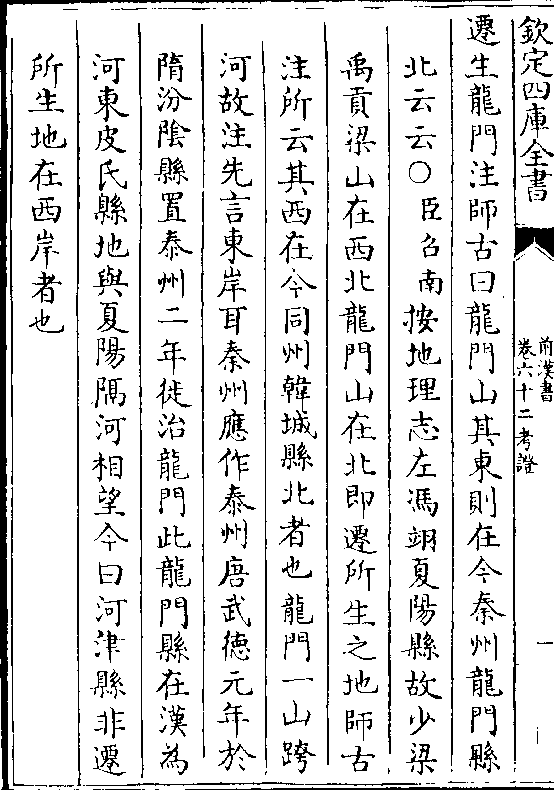 欽定四庫全書
前漢書
卷六十二考證
一
遷生龍門注師古曰龍門山其東則在今秦州龍門縣
北云云○臣召南按地理志左馮翊夏陽縣故少梁
禹貢梁山在西北龍門山在北即遷所生之地師古
注所云其西在今同州韓城縣北者也龍門一山跨
河故注先言東岸耳秦州應作泰州唐武德元年於
隋汾陰縣置泰州二年徙治龍門此龍門縣在漢為
河東皮氏縣地與夏陽隔河相望今曰河津縣非遷
所生地在西岸者也